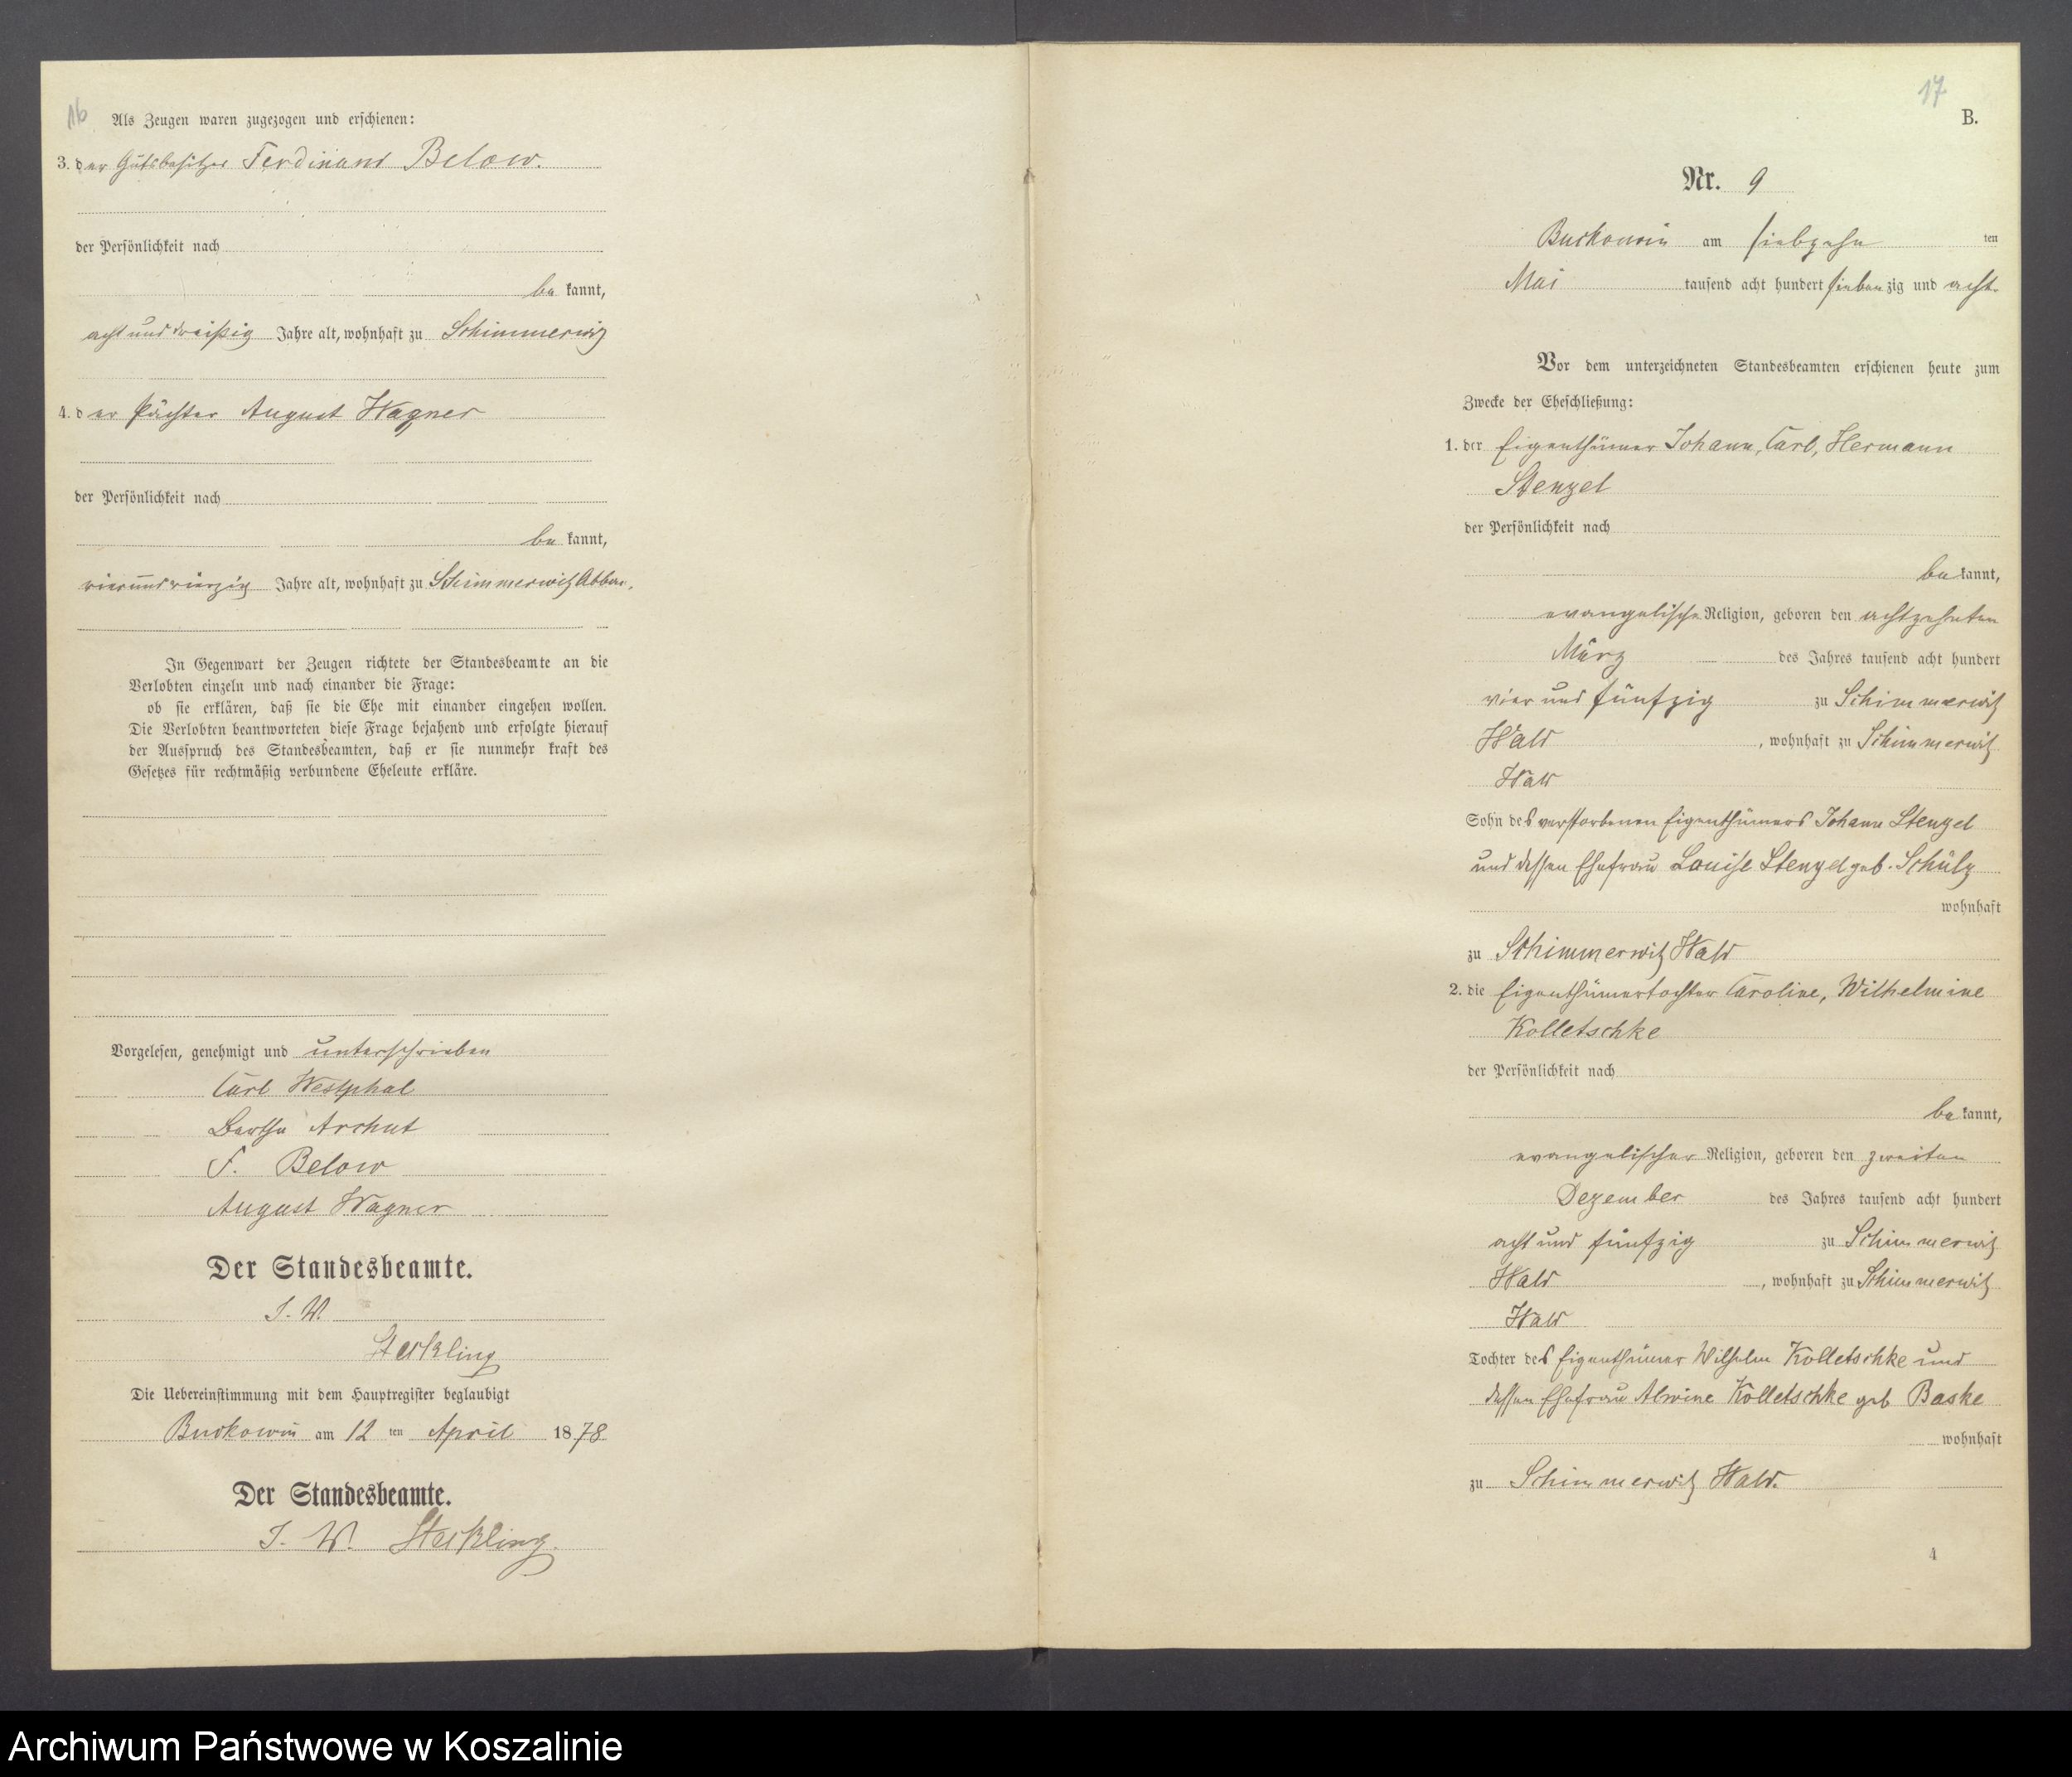 16
Als Zeugen waren zugezogen und erschienen:
3. der Gutsbesitzer Ferdinand Below.
der Persönlichkeit nach
be kannt,
acht und dreißig Jahre alt, wohnhaft zu Schimmerwitz
4. der Pächter August Wagner
der Persönlichkeit nach
be kannt,
vierundvierzig Jahre alt, wohnhaft zu Schimmerwitz Abbau,
In Gegenwart der Zeugen richtete der Standesbeamte an die
Verlobten einzeln und nach einander die Frage:
ob sie erklären, daß sie die Ehe mit einander eingehen wollen.
Die Verlobten beantworteten diese Frage bejahend und erfolgte hierauf
der Ausspruch des Standesbeamten, daß er sie nunmehr kraft des
Gesetzes für rechtmäßig verbundene Eheleute erkläre.
Vorgelesen, genehmigt und unterschrieben
Carl Westphal
Bertha Archut
F. Below
August Wagner
Der Standesbeamte.
I. V.
Steckling
Die Uebereinstimmung mit dem Hauptregister beglaubigt
Buckowin am 12 ten April 1878
Der Standesbeamte.
I. V. Steckling.
17
B.
Nr. 9
Buckowin am siebzehn ten
Mai tausend acht hundert sieben zig und acht.
Vor dem unterzeichneten Standesbeamten erschienen heute zum
Zwecke der Eheschließung:
1. der Eigenthümer Johann, Carl, Hermann
Stenzel
der Persönlichkeit nach
be kannt,
evangelische Religion, geboren den achtzehnten
März des Jahres tausend acht hundert
vier und fünfzig zu Schimmerwitz
Wald, wohnhaft zu Schimmerwitz
Wald
Sohn des verstorbenen Eigenthümers Johann Stenzel
und dessen Ehefrau Louise Stenzel geb. Schülz
wohnhaft
zu Schimmerwitz Wald
2. die Eigenthümertochter Caroline, Wilhelmine
Kolletschke
der Persönlichkeit nach
be kannt,
evangelischer Religion, geboren den zweiten
Dezember des Jahres tausend acht hundert
acht und fünfzig zu Schimmerwitz
Wald, wohnhaft zu Schimmerwitz
Wald
Tochter des Eigenthümer Wilhelm Kolletschke und
dessen Ehefrau Alwine Kolletschke geb Baske
wohnhaft
zu Schimmerwitz Wald.
4
Archiwum Państwowe w Koszalinie